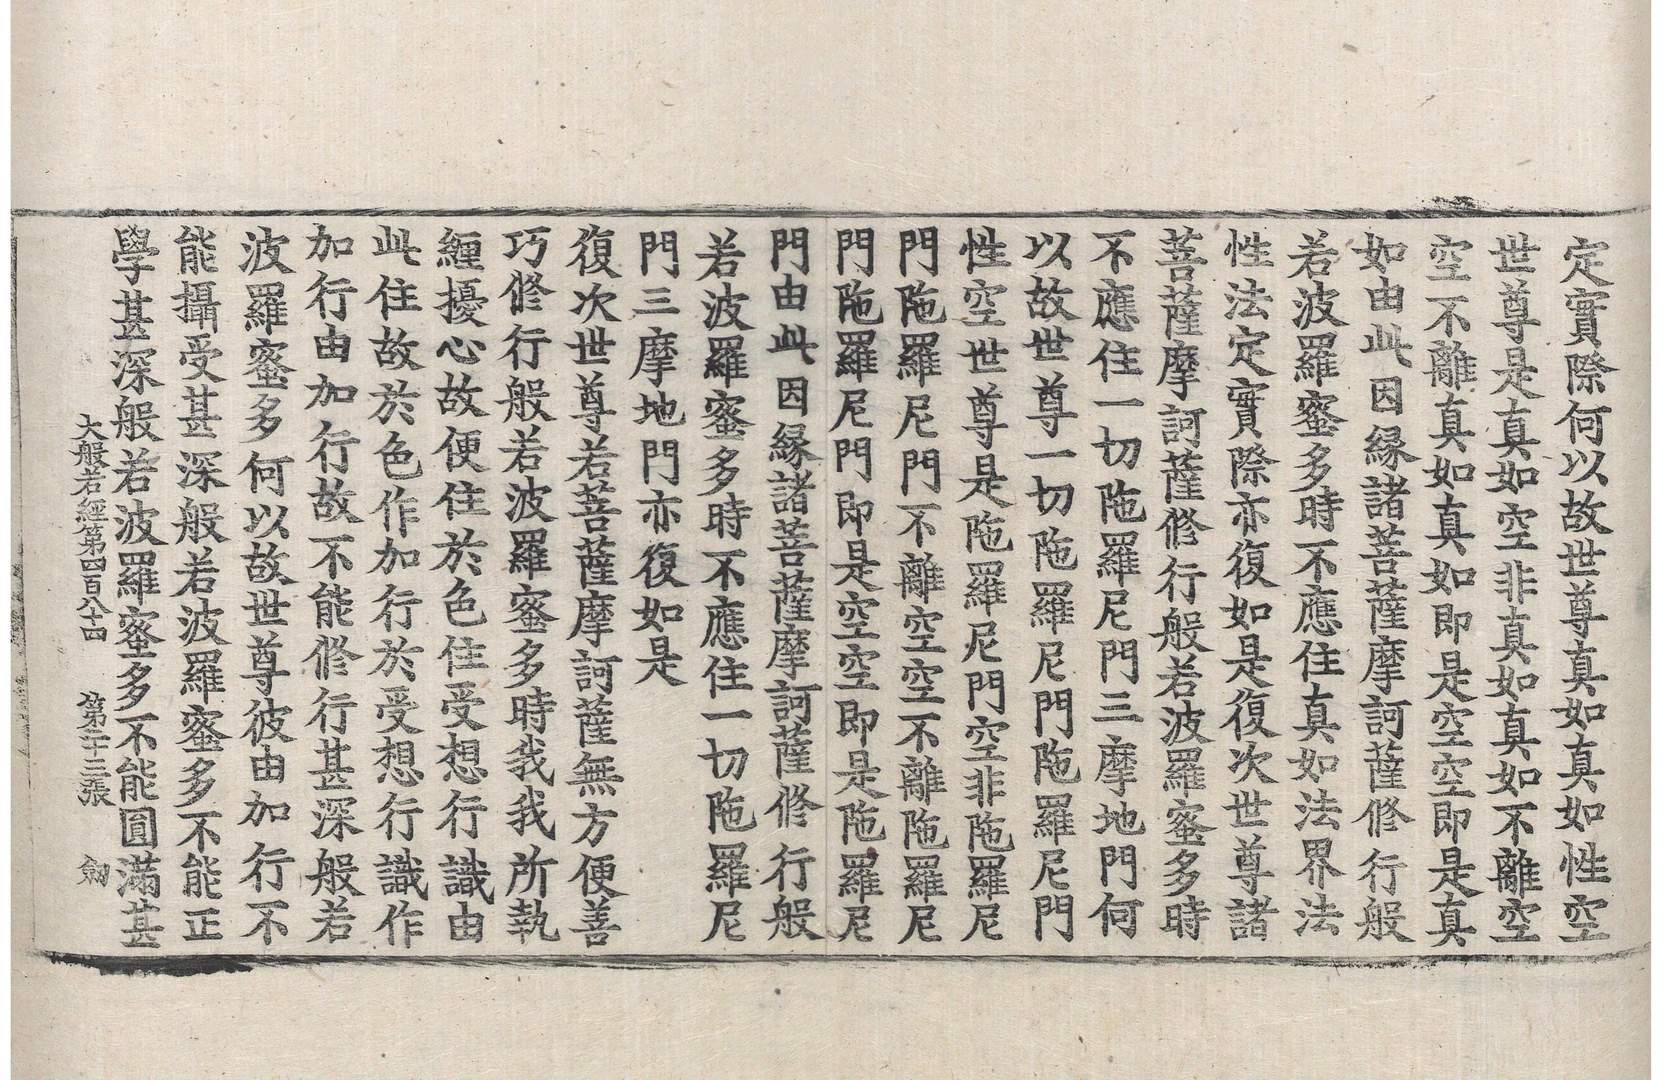 定實際何以故世尊真如真如性空
世尊是真如空非真如真如不離空
空不離真如真如即是空空即是真
如由此因縁諸菩薩摩訶薩修行般
若波羅蜜多時不應住真如法界法
性法定實際亦復如是復次世尊諸
菩薩摩訶薩修行般若波羅蜜多時
不應住一切陁羅尼門三摩地門何
以故世尊一切陁羅尼門陁羅尼門
性空世尊是陁羅尼門空非陁羅尼
門陁羅尼門不離空空不離陁羅尼
門陁羅尼門即是空空即是陁羅尼
門由此因縁諸菩薩摩訶薩修行般
若波羅蜜多時不應住一切陁羅尼
門三摩地門亦復如是
復次世尊若菩薩摩訶薩無方便善
巧修行般若波羅蜜多時我我所執
纏擾心故便住於色住受想行識由
此住故於色作加行於受想行識作
加行由加行故不能修行甚深般若
波羅蜜多何以故世尊彼由加行不
能攝受甚深般若波羅蜜多不能正
學甚深般若波羅蜜多不能圓滿甚
大般若經第四百八十四 第二十三張 劒